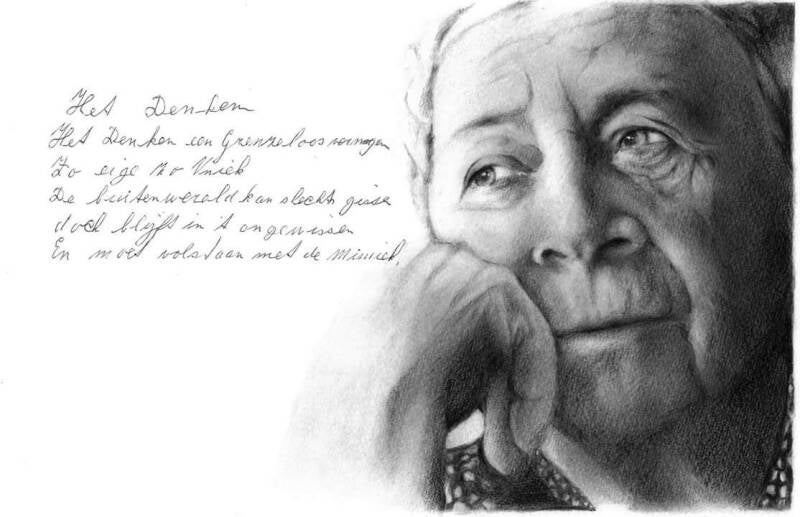 Het Denken
Het Denken een Grenzeloos vermogen
Zo eige zo Uniek
De buitenwereld kan slechts gisse
doch blijft in't ongewissen
En moet volstaan met de Mimiek.